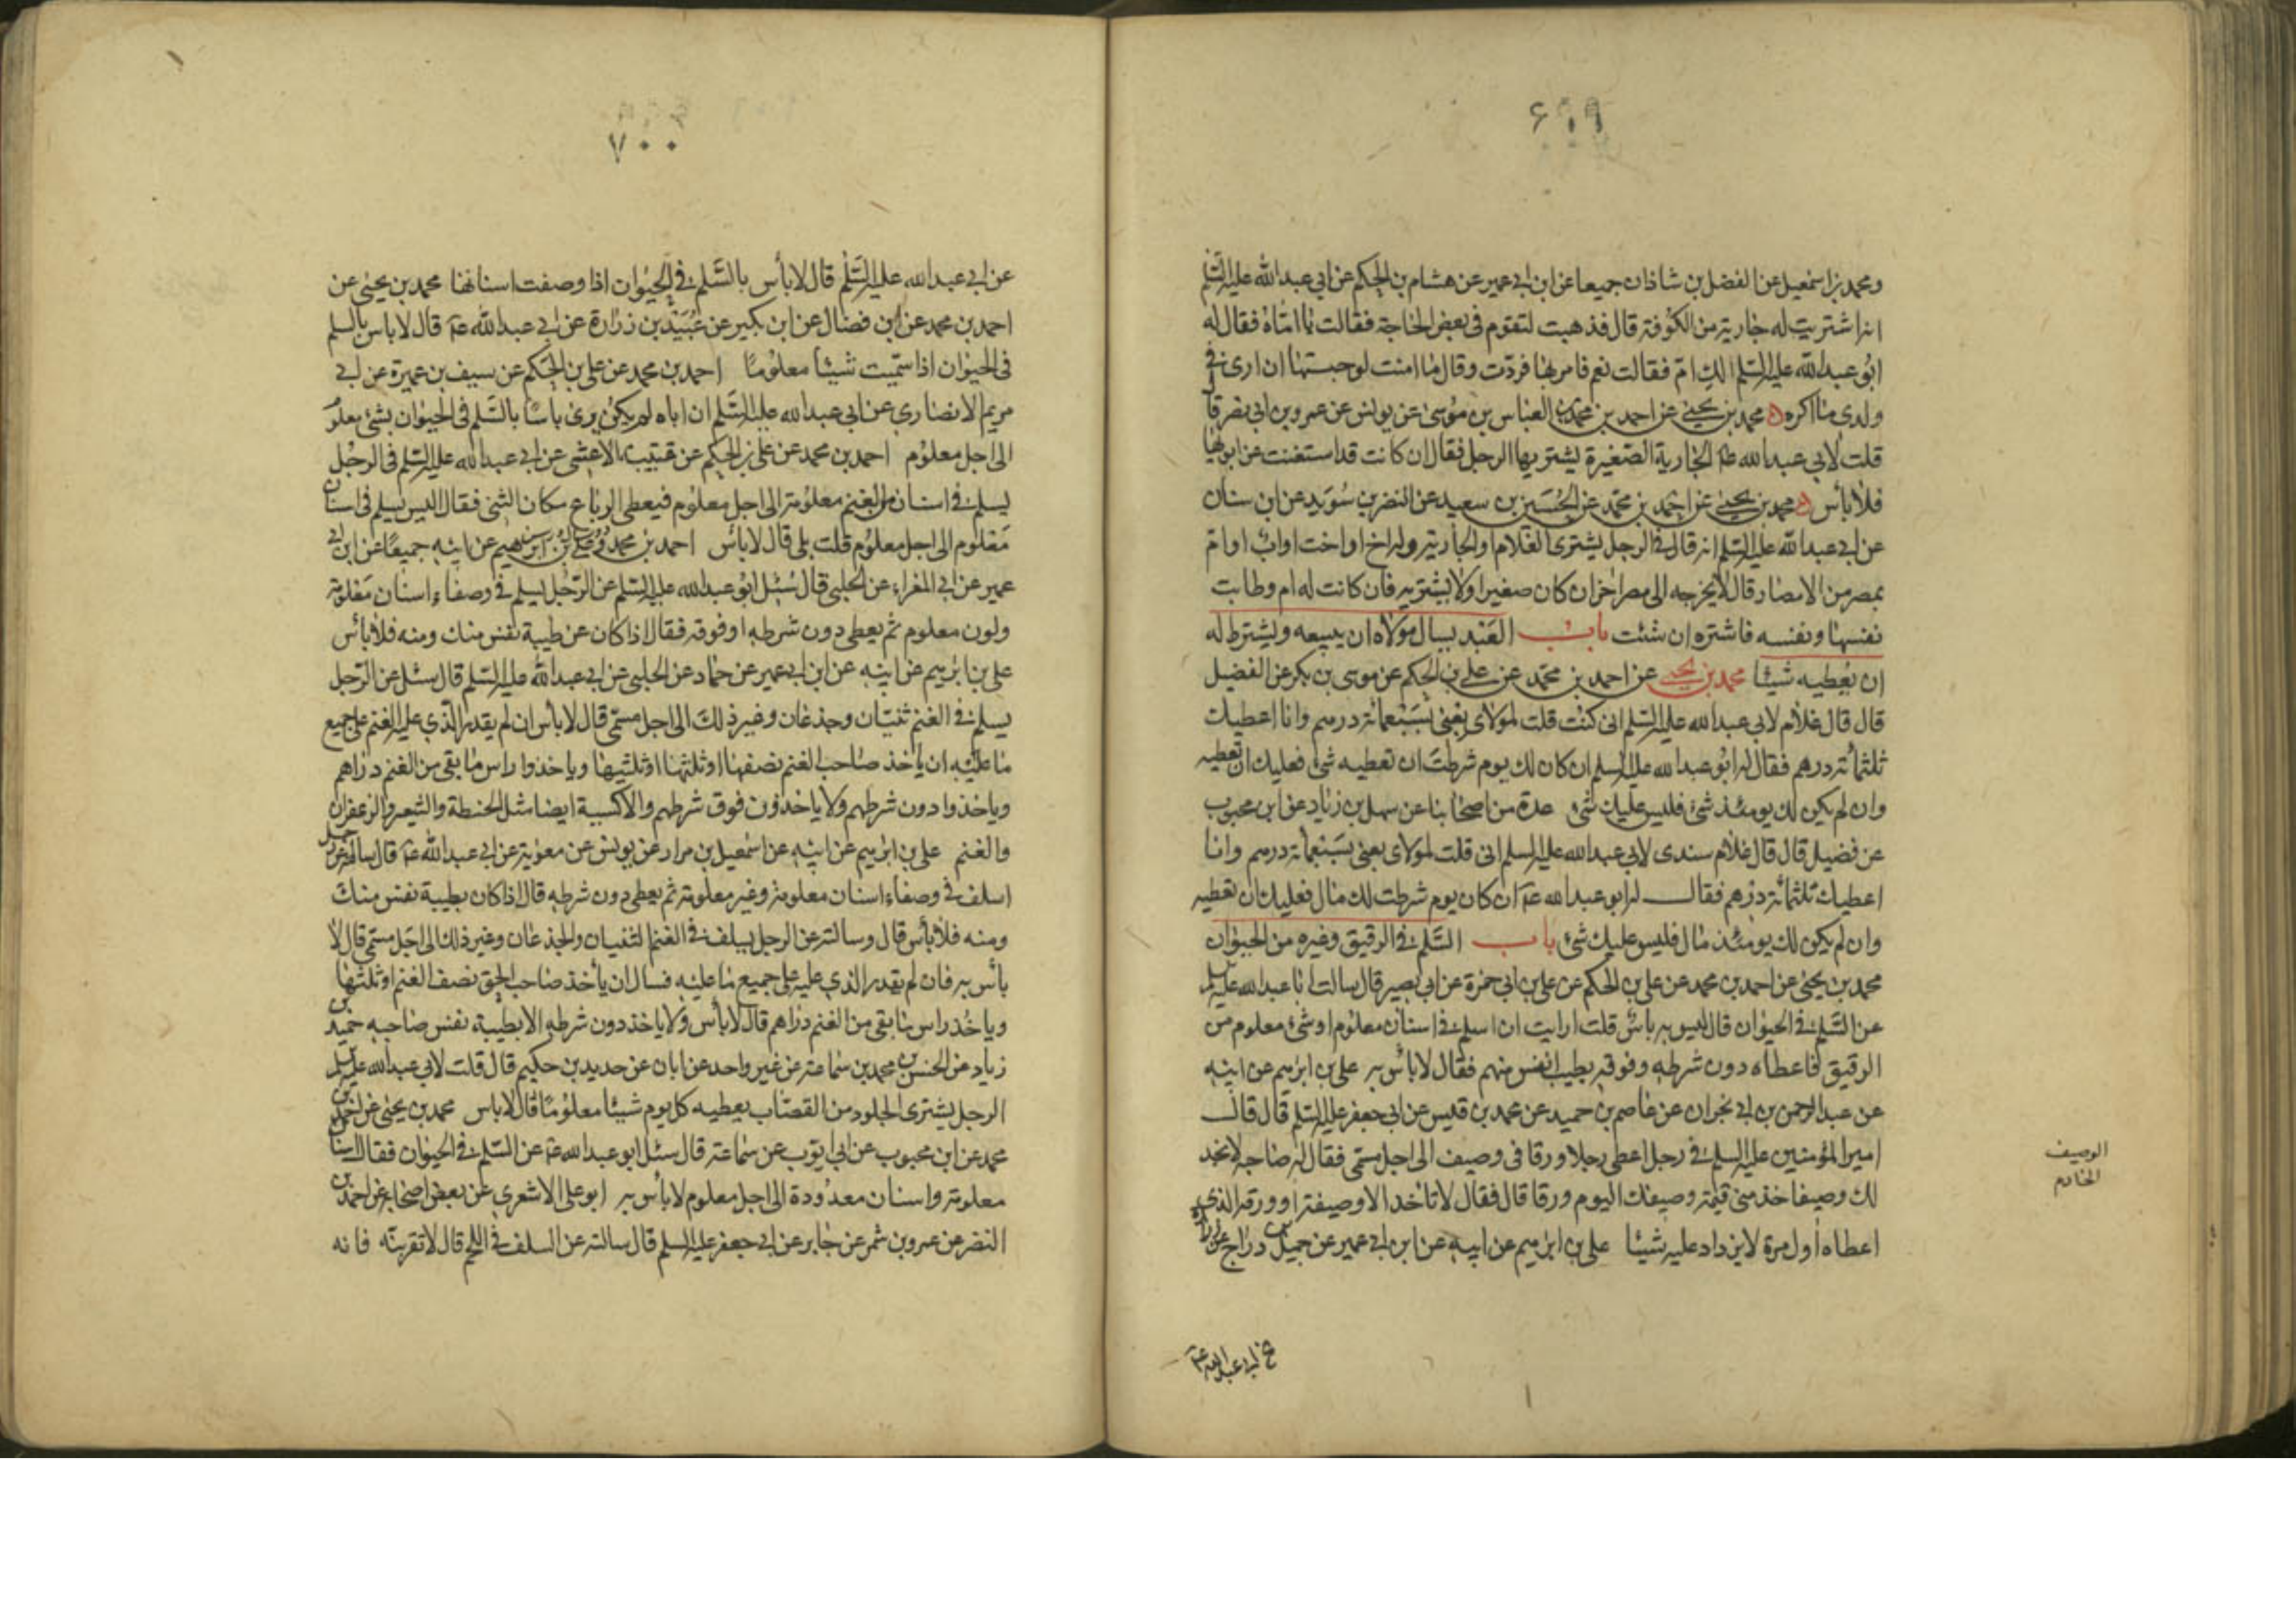 ۶۹۹
ومحمد بن اسمعيل عن الفضل بن شاذان جميعا عن ابن ابي عمير عن هشام بن الحكم عن ابي عبد الله عليه السلم
انه اشتريت له جارية من الكوفة قال فذهبت لتقوم في بعض الحاجة فقالت يا اماه فقال له
ابو عبد الله عليه السلم الك ام فقالت نعم فامر بها فردت وقال ما امنت لو حبستها ان ارى في
ولدي ما اكره محمد بن يحيى عن احمد بن محمد عن العباس بن موسى عن يونس عن عمرو بن ابي نصر قا
قلت لابي عبد الله ع الجارية الصغيرة يشتريها الرجل فقال ان كانت قد استغنت عن ابويها
فلا بأس محمد بن يحيى عن احمد بن محمد عن الحسين بن سعيد عن النضر بن سويد عن ابن سنان
عن ابي عبد الله عليه السلم انه قال في الرجل يشترى الغلام او الجارية وله اخ او اخت او اب او ام
بمصر من الامصار قال لا يخرجه الى مصر اخر ان كان صغيرا ولا يشتريه فان كانت له ام وطابت
نفسها ونفسه فاشتره ان شئت باب العبد يسال مولاه ان يبيعه ويشترط له
ان يعطيه شيئا محمد بن يحيى عن احمد بن محمد عن علي بن الحكم عن موسى بن بكر عن الفضيل
قال قال غلام لابي عبد الله عليه السلم اني كنت قلت لمولاى بعنى بسبعمائة درهم وانا اعطيك
ثلثمائة درهم فقال له ابو عبد الله عليه السلم ان كان لك يوم شرطت ان تعطيه شئ فعليك ان تعطيه
وان لم يكن لك يومئذ شئ فليس عليك شئ عدة من اصحابنا عن سهل بن زياد عن ابن محبوب
عن فضيل قال قال غلام سندى لابي عبد الله عليه السلم اني قلت لمولاى بعنى بسبعمائة درهم وانا
اعطيك ثلثمائة درهم فقال له ابو عبد الله ع ان كان يوم شرطت لك مال فعليك ان تعطيه
وان لم يكن لك يومئذ مال فليس عليك شئ باب السلم في الرقيق وغيره من الحيوان
محمد بن يحيى عن احمد بن محمد عن علي بن الحكم عن علي بن ابي حمزة عن ابي بصير قال سالت ابا عبد الله عليه السلم
عن السلم في الحيوان قال ليس به باس قلت ارايت ان اسلم في اسنان معلوم او شئ معلوم من
الرقيق فاعطاه دون شرطه وفوقه بطيب انفس منهم فقال لا بأس به علي بن ابرهيم عن ابيه
عن عبد الرحمن بن ابي نجران عن عاصم بن حميد عن محمد بن قيس عن ابي جعفر عليه السلم قال قال
امير المؤمنين عليه السلم في رجل اعطى رجلا ورقا في وصيف الى اجل مسمى فقال له صاحبه لا نجد
لك وصيفا خذ منى قيمة وصيفك اليوم ورقا قال فقال لا تاخذ الا وصيفه او ورقه الذي
اعطاه اول مرة لا يزداد عليه شيئا علي بن ابرهيم عن ابيه عن ابن ابي عمير عن جميل بن دراج عن زرارة
الوصيف
الخادم
عن ابي عبد الله ع
۷۰۰
عن ابي عبد الله عليه السلم قال لا بأس بالسلم في الحيوان اذا وصفت اسنانها محمد بن يحيى عن
احمد بن محمد عن ابن فضال عن ابن بكير عن عبيد بن زرارة عن ابي عبد الله ع قال لا باس بالسلم
في الحيوان اذا سميت شيئا معلوما احمد بن محمد عن علي بن الحكم عن سيف بن عميرة عن ابي
مريم الانصاري عن ابي عبد الله عليه السلم ان اباه لم يكن يرى باسا بالسلم في الحيوان بشئ معلوم
الى اجل معلوم احمد بن محمد عن علي بن الحكم عن قتيبة الاعشى عن ابي عبد الله عليه السلم في الرجل
يسلم في اسنان من الغنم معلومة الى اجل معلوم فيعطى الرباع مكان الثنى فقال اليس يسلم في اسنان
معلوم الى اجل معلوم قلت بلى قال لا بأس احمد بن محمد وعلي بن ابرهيم عن ابيه جميعا عن ابن ابي
عمير عن ابي المغراء عن الحلبي قال سئل ابو عبد الله عليه السلم عن الرجل يسلم في وصفاء اسنان معلومة
ولون معلوم ثم يعطى دون شرطه او فوقه فقال اذا كان عن طيبة نفس منك ومنه فلا بأس
علي بن ابرهيم عن ابيه عن ابن ابي عمير عن حماد عن الحلبي عن ابي عبد الله عليه السلم قال سئل عن الرجل
يسلم في الغنم ثنيان وجذعان وغير ذلك الى اجل مسمى قال لا بأس ان لم يقدر الذي عليه الغنم على جميع
ما عليه ان ياخذ صاحب الغنم نصفها او ثلثها او ثلثيها وياخذوا راس ما بقى من الغنم دراهم
وياخذوا دون شرطهم ولا ياخذون فوق شرطهم والاكسية ايضا مثل الحنطة والشعير والزعفران
والغنم علي بن ابرهيم عن ابيه عن اسمعيل بن مرار عن يونس عن معوية عن ابي عبد الله ع قال سالته عن رجل
اسلف في وصفاء اسنان معلومة وغير معلومة ثم يعطى دون شرطه قال اذا كان بطيبة نفس منك
ومنه فلا بأس قال وسالته عن الرجل يسلف في الغنم الثنيان والجذعان وغير ذلك الى اجل مسمى قال لا
بأس به فان لم يقدر الذي عليه على جميع ما عليه فسال ان يأخذ صاحب الحق نصف الغنم او ثلثها
وياخذ راس ما بقى من الغنم دراهم قال لا بأس ولا ياخذ دون شرطه الا بطيبة نفس صاحبه حميد بن
زياد عن الحسن بن محمد بن سماعة عن غير واحد عن ابان عن حديد بن حكيم قال قلت لابي عبد الله عليه السلم
الرجل يشترى الجلود من القصاب يعطيه كل يوم شيئا معلوما قال لا باس محمد بن يحيى عن احمد بن
محمد عن ابن محبوب عن ابي ايوب عن سماعة قال سئل ابو عبد الله ع عن السلم في الحيوان فقال اسنان
معلومة واسنان معدودة الى اجل معلوم لا بأس به ابو علي الاشعرى عن بعض اصحابه عن احمد بن
النضر عن عمرو بن شمر عن جابر عن ابي جعفر عليه السلم قال سالته عن السلف في اللحم قال لا تقربنه فانه